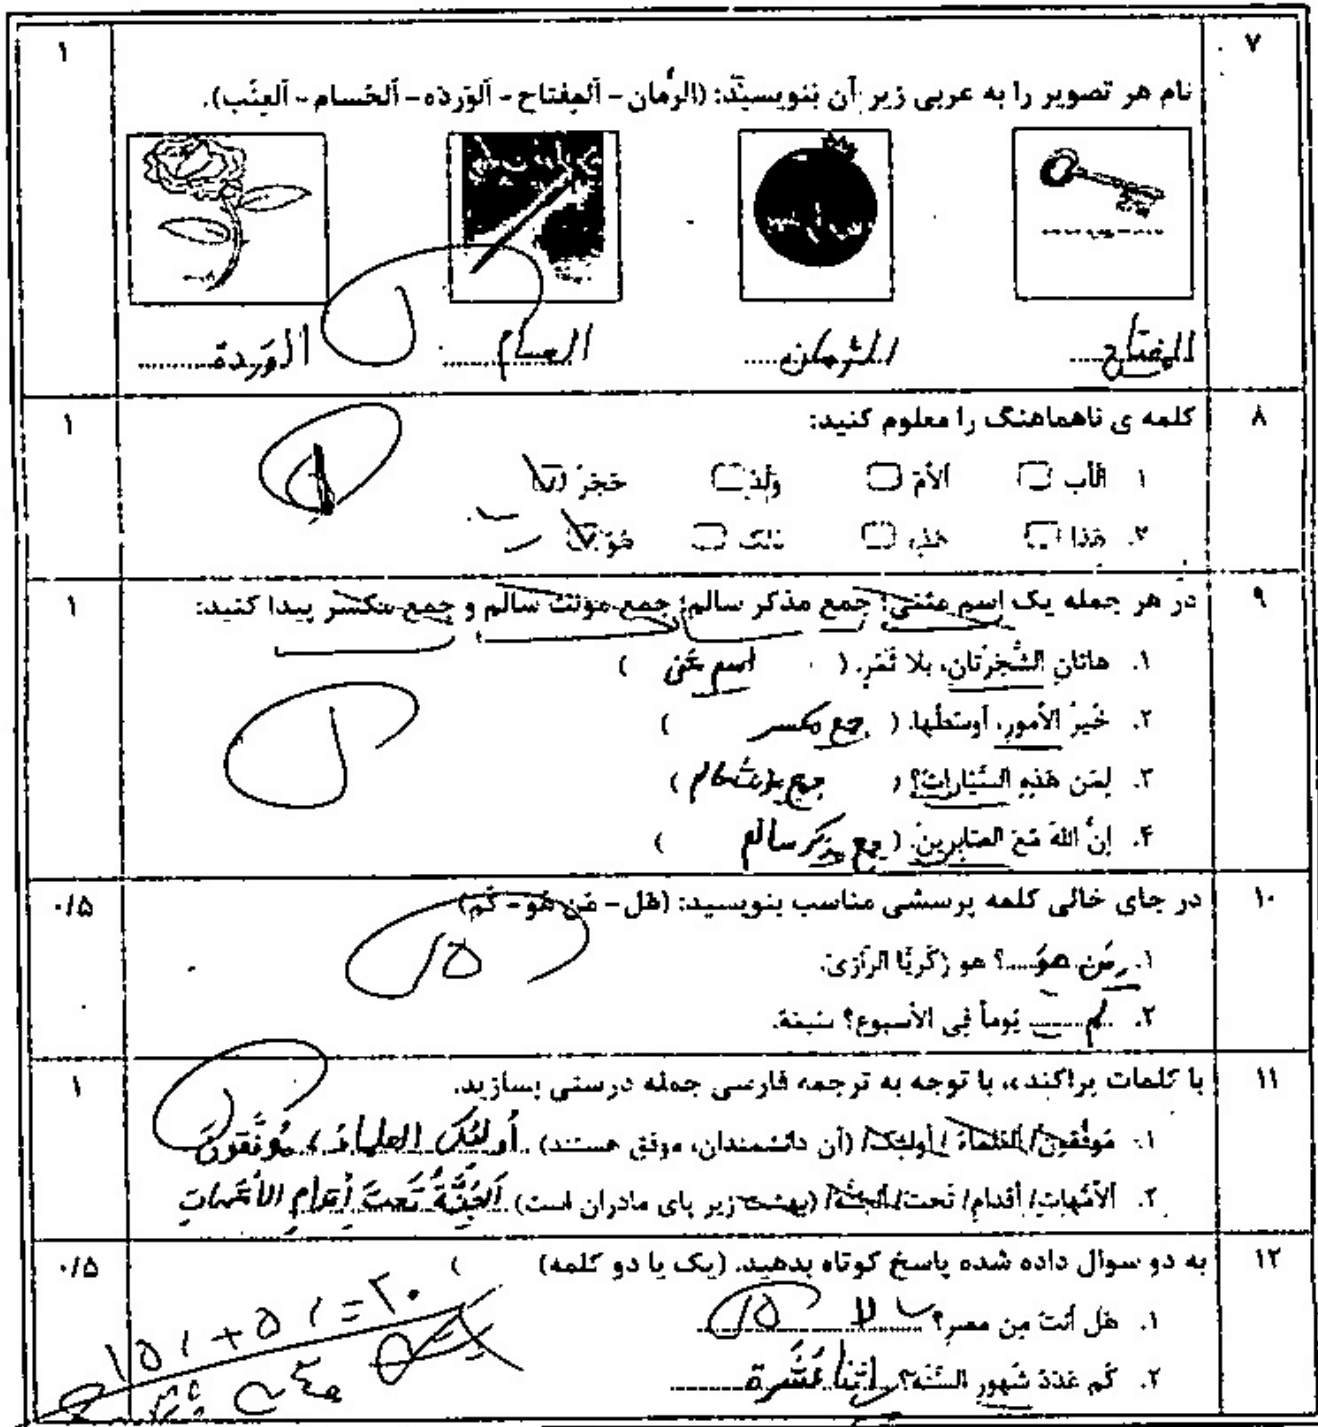 ۷
۱
نام هر تصویر را به عربی زیر آن بنویسید: (الرُّمان - اَلمِفتاح - اَلوَرده - اَلحُسام - اَلعِنَب).
المِفتاح الرُّمان الحسام الوَردة
۸ کلمه ی ناهماهنگ را معلوم کنید: ۱
۱ الأب الأمّ وَلَد حَجَر
۲. هَذا هَذِهِ تلک هُوَ
۹ در هر جمله یک اسم مثنی؛ جمع مذکر سالم؛ جمع مونث سالم و جمع مکسر پیدا کنید: ۱
۱. هاتانِ الشَّجَرَتانِ، بلا ثَمَرٍ. ( اسم مثنی )
۲. خَیرُ الأمورِ، أوسَطُها. ( جمع مکسر )
۳. لِمَن هَذِهِ السَّیّاراتُ؟ ( جمع مؤنث سالم )
۴. إنَّ اللهَ مَعَ الصّابِرینَ. ( جمع مذکر سالم )
۱۰ در جای خالی کلمه پرسشی مناسب بنویسید: (هَل - مَن هُوَ - کَم) ۰/۵
۱. مَن هُوَ؟ هو زَکَریّا الرّازیّ.
۲. کم یَوماً فِی الأسبوعِ؟ سَبعَة.
۱۱ با کلمات پراکنده، با توجه به ترجمه فارسی جمله درستی بسازید. ۱
۱. مُوَفَّقونَ/ اَلعُلَماءُ / أولئِکَ/ (آن دانشمندان، موفق هستند) أُولئِکَ العلماءُ، مُوَفَّقونَ
۲. الأمَّهاتِ/ أقدامِ/ تَحتَ/ اَلجَنَّةُ/ (بهشت زیر پای مادران است) اَلجَنَّةُ تَحتَ أَقدامِ الأُمَّهاتِ
۱۲ به دو سوال داده شده پاسخ کوتاه بدهید. (یک یا دو کلمه) ۰/۵
۱. هَل أنتَ مِن مصرٍ؟ لا
۲. کَم عَدَدُ شُهورِ السَّنَة؟ اِثنا عَشَرة